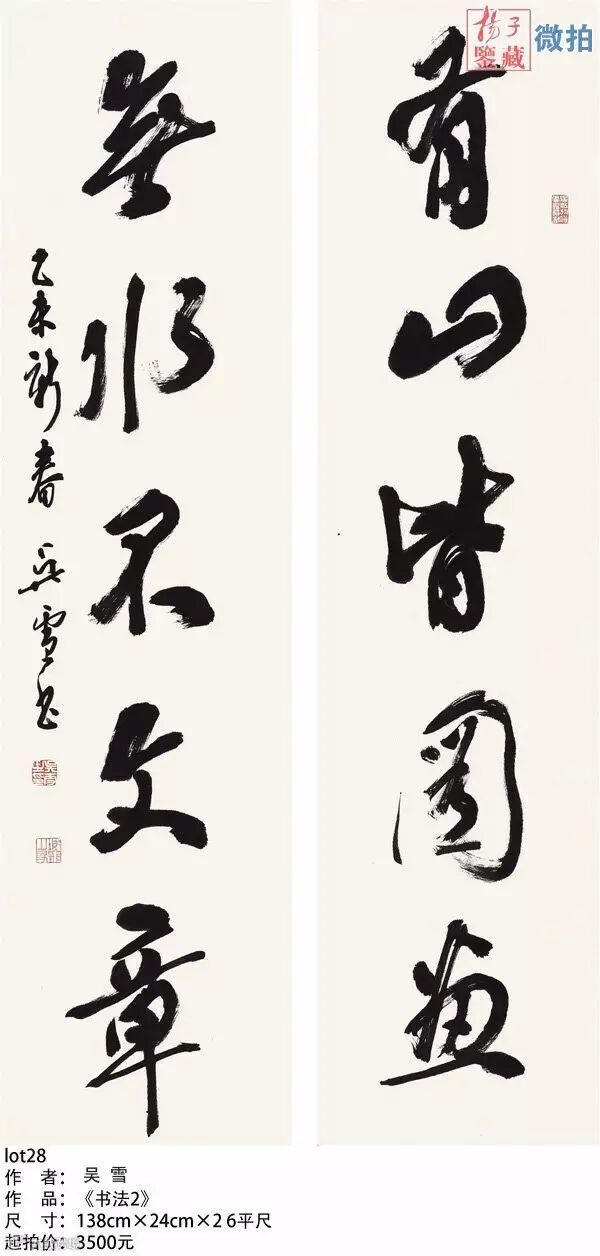 楊子
鑒藏
微拍
有山皆圖畫
無水不文章
乙未新春吴雪书
lot28
作 者：吴 雪
作 品：《书法2》
尺 寸：138cm×24cm×2 6平尺
起拍价：3500元